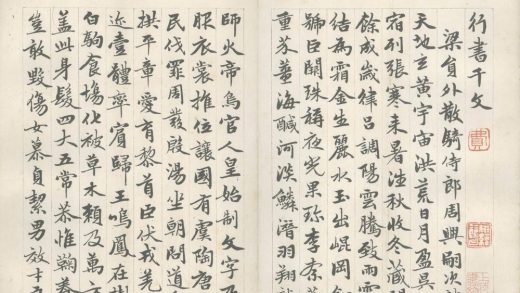 行書千文
梁員外散騎侍郎周興嗣次
天地玄黃宇宙洪荒日月盈昃
宿列張寒来暑往秋收冬藏
餘成歲律呂調陽雲騰致雨
結為霜金生麗水玉出崐岡
號巨闕珠稱夜光果珍李柰
重芥薑海鹹河淡鱗潛羽翔
師火帝鳥官人皇始制文字乃
服衣裳推位讓國有虞陶唐
民伐罪周發殷湯坐朝問道
拱平章愛育黎首臣伏戎羌
邇壹體率賓歸王鳴鳳在
白駒食場化被草木賴及萬
蓋此身髮四大五常恭惟鞠養
豈敢毀傷女慕貞絜男效才